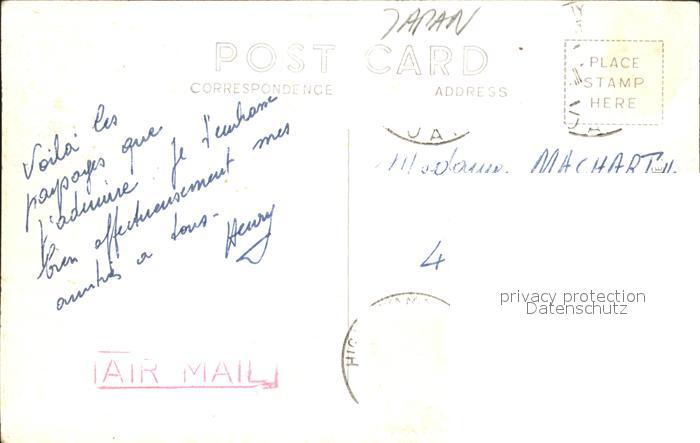 JAPAN
POST CARD
CORRESPONDENCE
ADDRESS
PLACE
STAMP
HERE
Voilà les
paysages que
j'admire. Je t'embrasse
bien affectueusement mes
amitiés a tous.
Henry
Madame. MACHART
4
privacy protection
Datenschutz
AIR MAIL